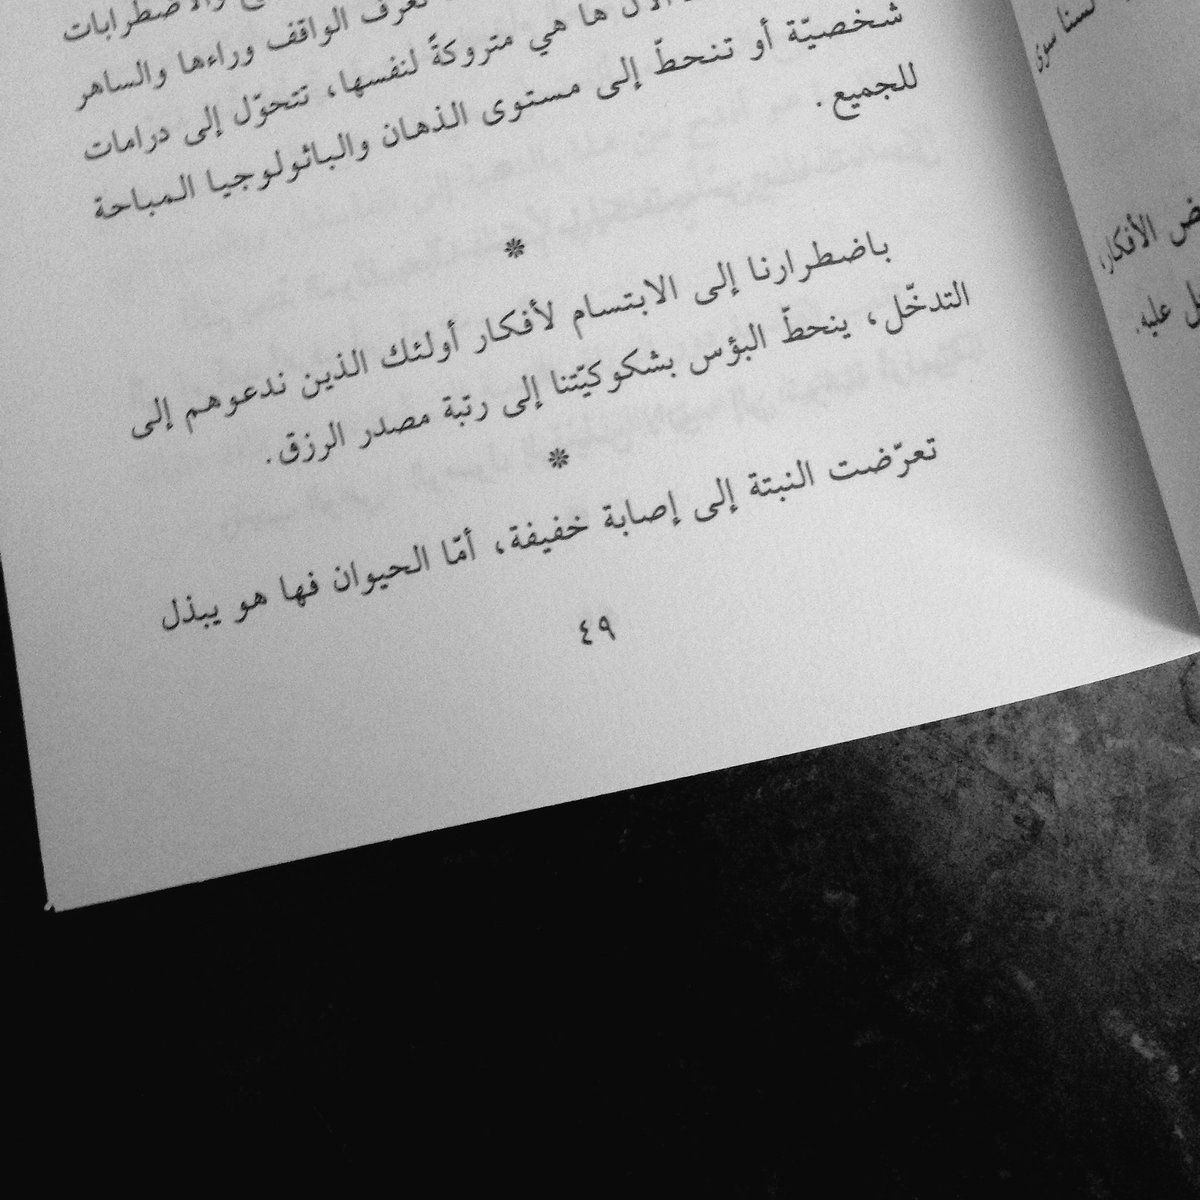 والاضطرابات
نعرف الواقف وراءها والساهر
الآن ها هي متروكةً لنفسها، تتحوّل إلى درامات
شخصيّة أو تنحطّ إلى مستوى الذهان والباثولوجيا المباحة
للجميع.
*
باضطرارنا إلى الابتسام لأفكار أولئك الذين ندعوهم إلى
التدخّل، ينحطّ البؤس بشكوكيّتنا إلى رتبة مصدر الرزق.
*
تعرّضت النبتة إلى إصابة خفيفة، أمّا الحيوان فها هو يبذل
٤٩
لسنا سوى
الأفكار،
عليه.